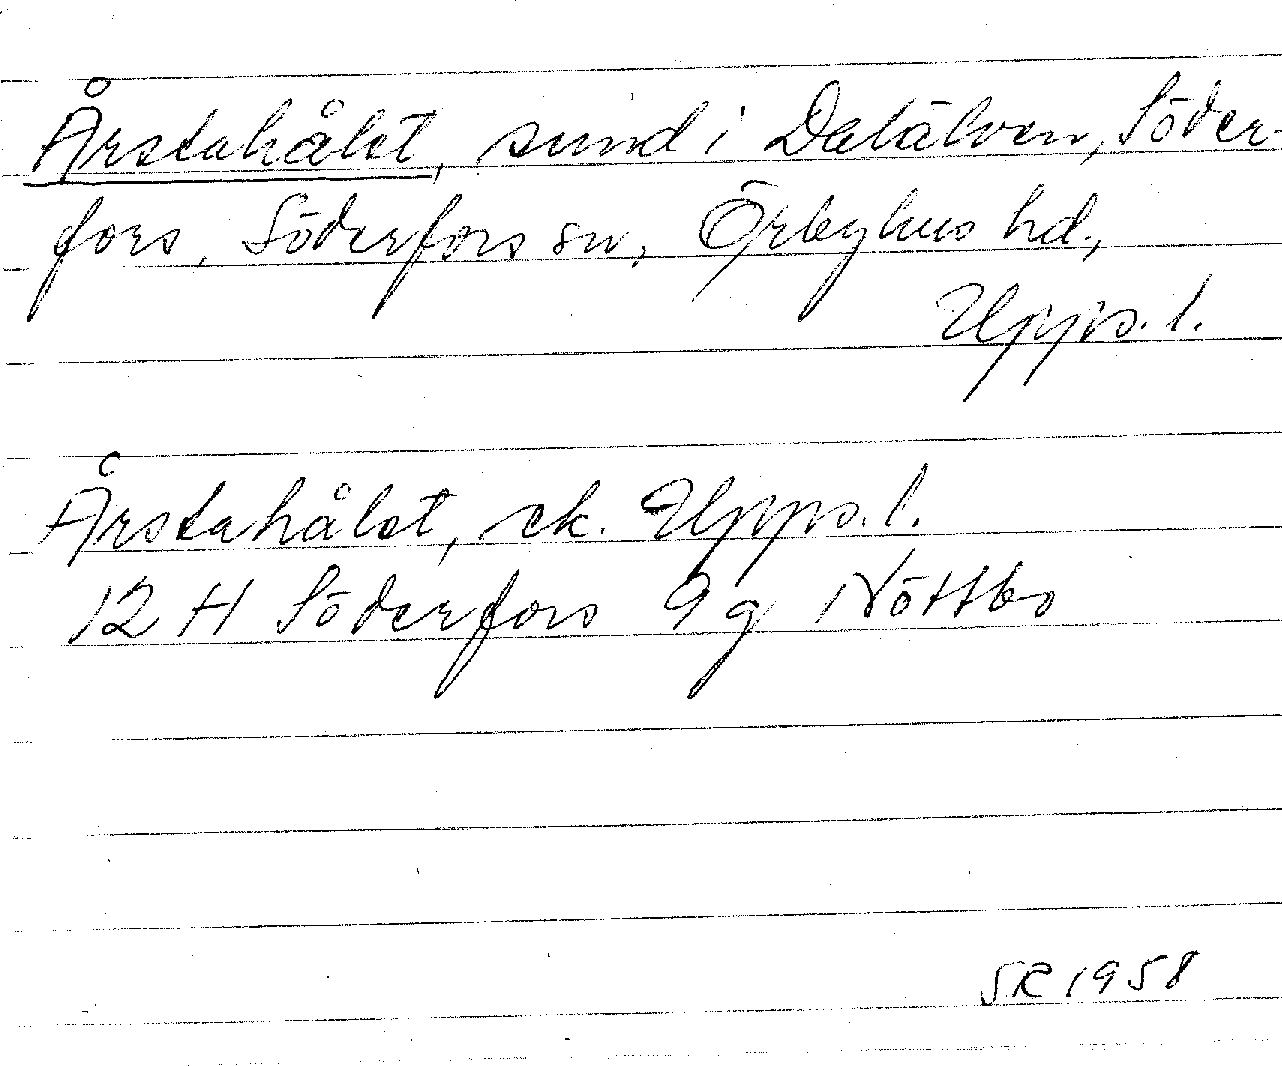 Årstahålet, sund i Dalälven, Söder-
fors, Söderfors sn, Örbyhus hd,
Upps. l.
Årstahålet, ek. Upps. l.
12 H Söderfors 9 g Nöttbo
SR 1958